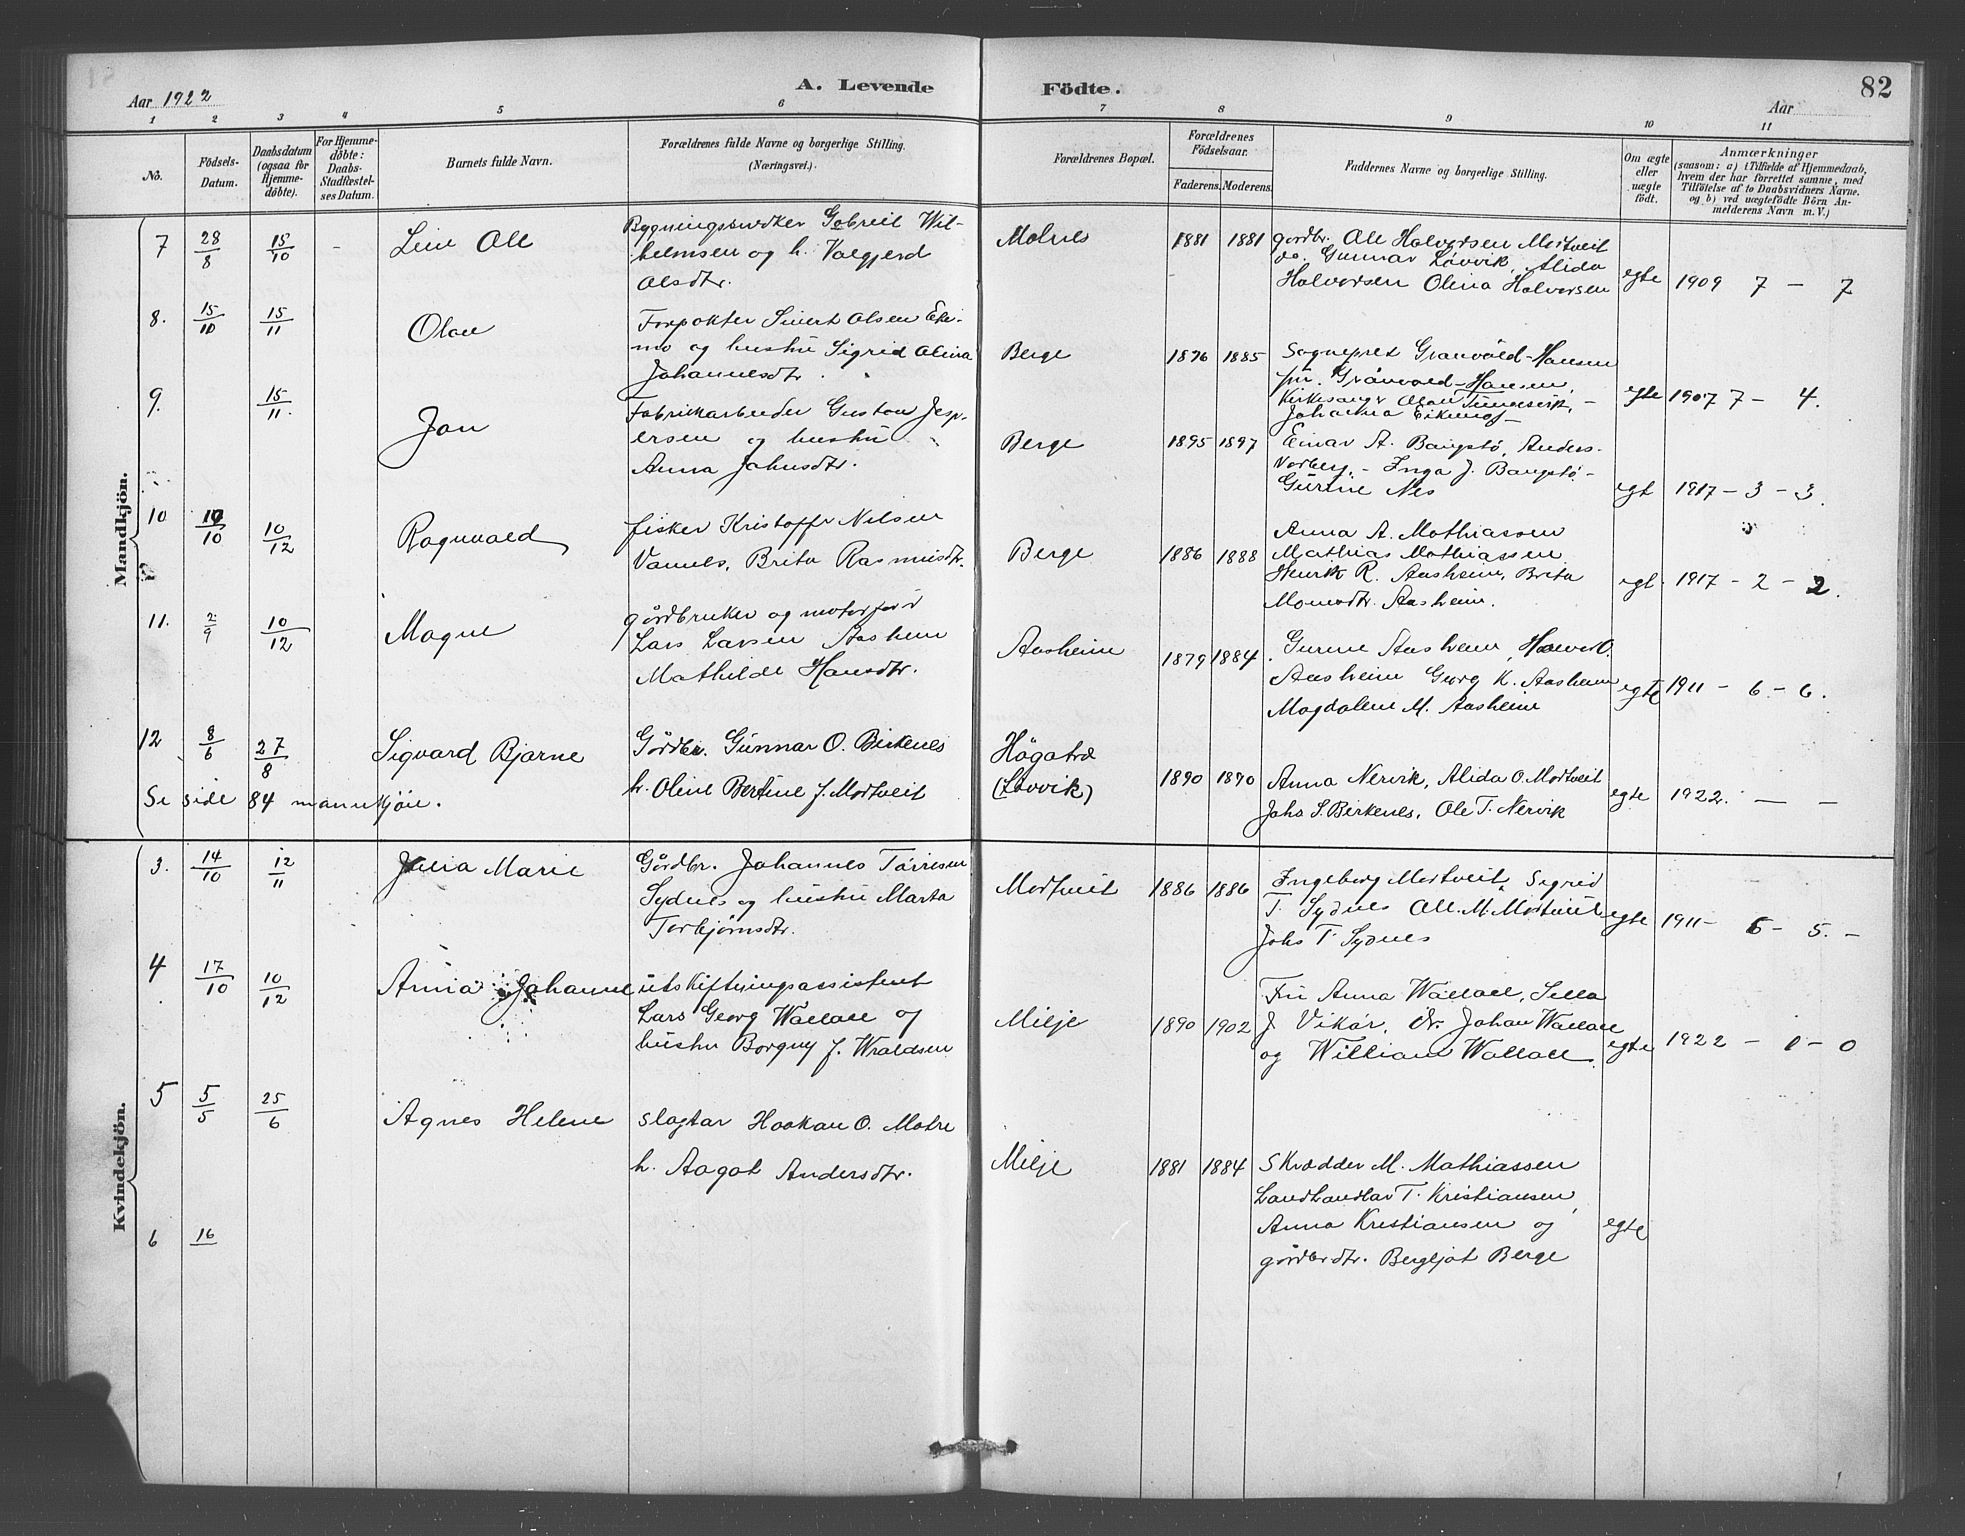 82
Aar 1922 A. Levende Födte. Aar
1 2 3 4 5 6 7 8 9 10 11
No.
Födsels-Datum.
Daabsdatum (ogsaa for Hjemme-döbte).
For Hjemme-döbte: Daabs-Stadfæstel-ses Datum.
Barnets fulde Navn.
Forældrenes fulde Navne og borgerlige Stilling.
(Næringsvei.)
Forældrenes Bopæl.
Forældrenes Födselsaar.
Faderens. Moderens.
Faddernes Navne og borgerlige Stilling.
Om ægte eller uægte födt.
Anmærkninger
(saasom: a) i Tilfælde af Hjemmedaab,
hvem der har forrettet samme, med
Tilföielse af to Daabsvidners Navne.
og b) ved uægtefödte Börn An-
melderens Navn m. V.)
Mandkjön.
7 28/8 15/10 -
Ole
Gabriel Wil-
helmsen og h. Valgjerd
Olsdtr.
Molnes
1881 1881
gårdbr. Ole Halvorsen Mortveit
do. Gunnar Løvvik, Alida
Halvorsen Olina Halvorsen
egte
1909 7 - 7
8. 15/10 15/11
Olav
Forpakter Sivert Olsen Eke-
mo og hustru Sigrid Olina
Johannesdtr.
Berge
1876 1885
Sogneprest Granvold-Hansen
fru. Granvold-Hansen,
Kirkesanger Olav
Johanna
egte
1907 7 - 4.
9. 15/11.
Jon
Fabrikarbeider Gustav Jesp-
ersen og hustru
Anna Johnsdtr.
Berge
1895 1897
Einar A. Bangstø, Anders
Norberg, - Inga J. Bangstø -
Gurine Nes
egt
1917 - 3 - 3.
10 10/10 10/12
Ragnvald
fisker Kristoffer Nilsen
Vannes, Brita Rasmusdtr.
Berge
1886 1888
Anna A. Mathiassen
Mathias Mathiassen
Henrik R. Aasheim, Brita
Monsdtr. Aasheim.
egt.
1917 - 2 - 2.
11. 2/9 10/12
Magne
gårdbruker og motorfører
Lars Larsen Aasheim
Mathilde Hansdtr.
Aasheim
1879 1884
Gurine Aasheim, Halvor O.
Aasheim Georg K. Aasheim
Magdalene M. Aasheim
egte
1911 - 6 - 6.
12 8/6 27/8
Sigvard Bjarne
Gårdbr. Gunnar O. Birkenes
h. Oline Bertine f. Mortveit
Högatræ
(Løvvik)
1890 1890
Anna Nervik, Alida O. Mortveit
Johs S. Birkenes, Ole T. Nervik
egte
1922. - -
Se side 84 mannkjön.
Kvindekjön.
3. 14/10 12/11
Julia Marie
Gårdbr. Johannes Tørresen
Sydnes og hustru Marta
Torbjørnsdtr.
Mortveit
1886 1886
Ingeborg Mortveit, Sigrid
T. Sydnes Ole M. Mortveit
Johs T. Sydnes
egte
1911 - 5 - 5. -
4 17/10 10/12
Anna Johanne
utskiftningsassistent
Lars Georg Wallace og
hustru Borgny f. Wraldsen
Milje
1890 1902
Fru Anna Wallace, Sella
J Vikør, Johan Wallace
og William Wallace.
egte
1922 - 0 - 0
5 5/5 25/6
Agnes Helene
slagtar Haakan O. Matre
h. Aagot Andersdtr.
Milje
1881 1884
Skrædder M. Mathiassen
Landhandlar T. Kristiansen,
Anna Kristiansen og
gårdbrdtr. Bergljot Berge
egte
6 16